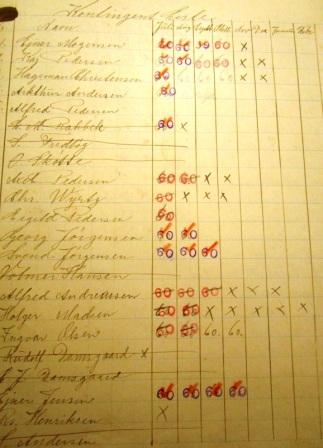 Kontingent Liste
Navn Juli Aug Sept. Okt. Nov Dec Januar Feb.
Ejner Mogensen 60 60 60 60 x
Kaj Pedersen 60 60 60 60 x x
Hageman Christensen 60 60 60 60 x x
Arkthur Andersen 60
Alfred Petersen
Rahbek 60 x
S. Fredbøg
O. Skotte
Abl. Pedersen 60 60 x x
Chr. Wyrtz 60 x x x
Eigild Pedersen 60
Georg Jørgensen 60 60
Svend Jørgensen 60 60 60
Volmer Hansen
Alfred Andreasen 60 60 60 x x x
Holger Madsen 60 60 x x x x x
Ingvar Olsen 60 60 60. 60.
Rudolf Damsgaard x
J. Damsgaard
Ejner Jensen 60 60 60 60
Rs. Henriksen x
Andersen